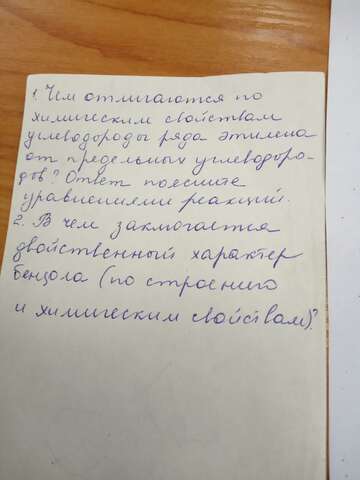 1. Чем отличаются по
химическим свойствам
углеводороды ряда этилена
от предельных углеводоро-
дов? Ответ поясните
уравнениями реакций.
2. В чем заключается
двойственный характер
бензола (по строению
и химическим свойствам)?